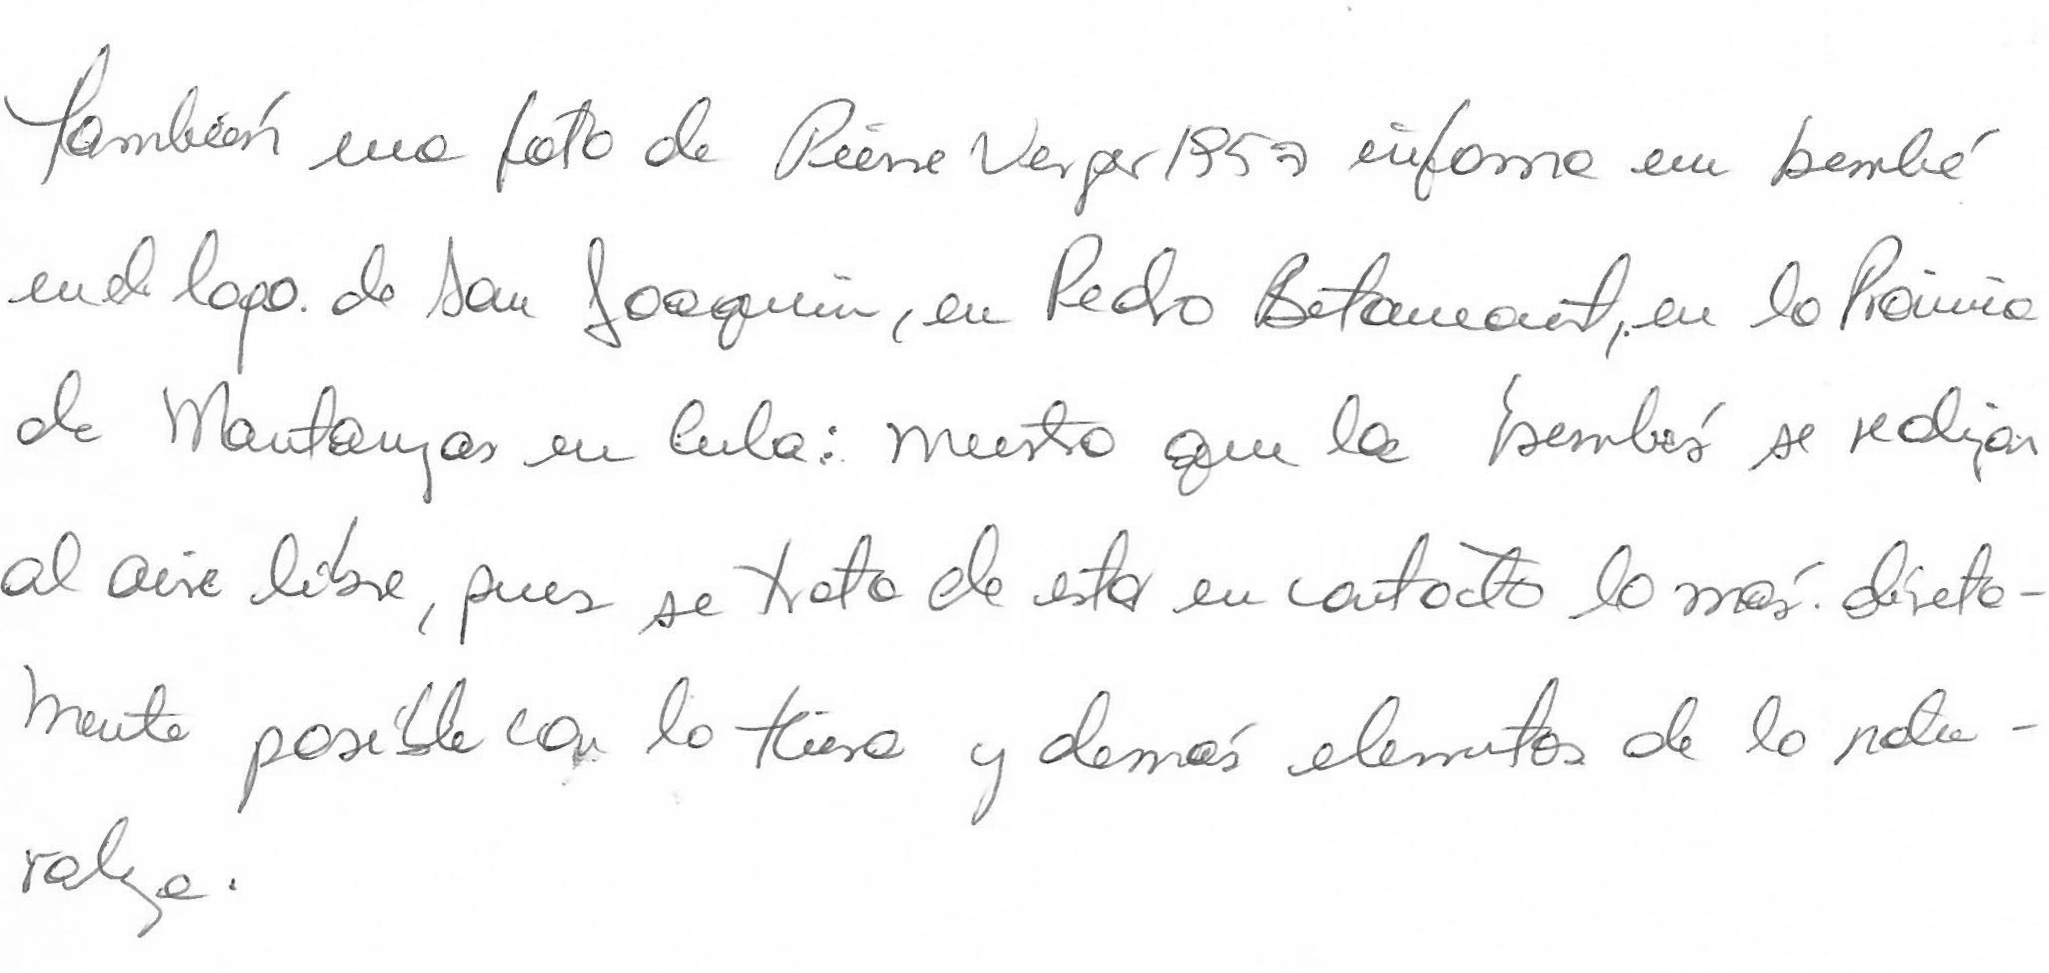 También una foto de Pierre Verger 1957 informa un bembé
en el lago. de San Joaquín, en Pedro Betancourt, en la Provincia
de Mantanzas en Cuba: muestra que la bembés se realizan
al aire libre, pues se trata de estar en contacto lo más. directa-
mente posible con la tierra y demás elementos de la natu-
raleza.